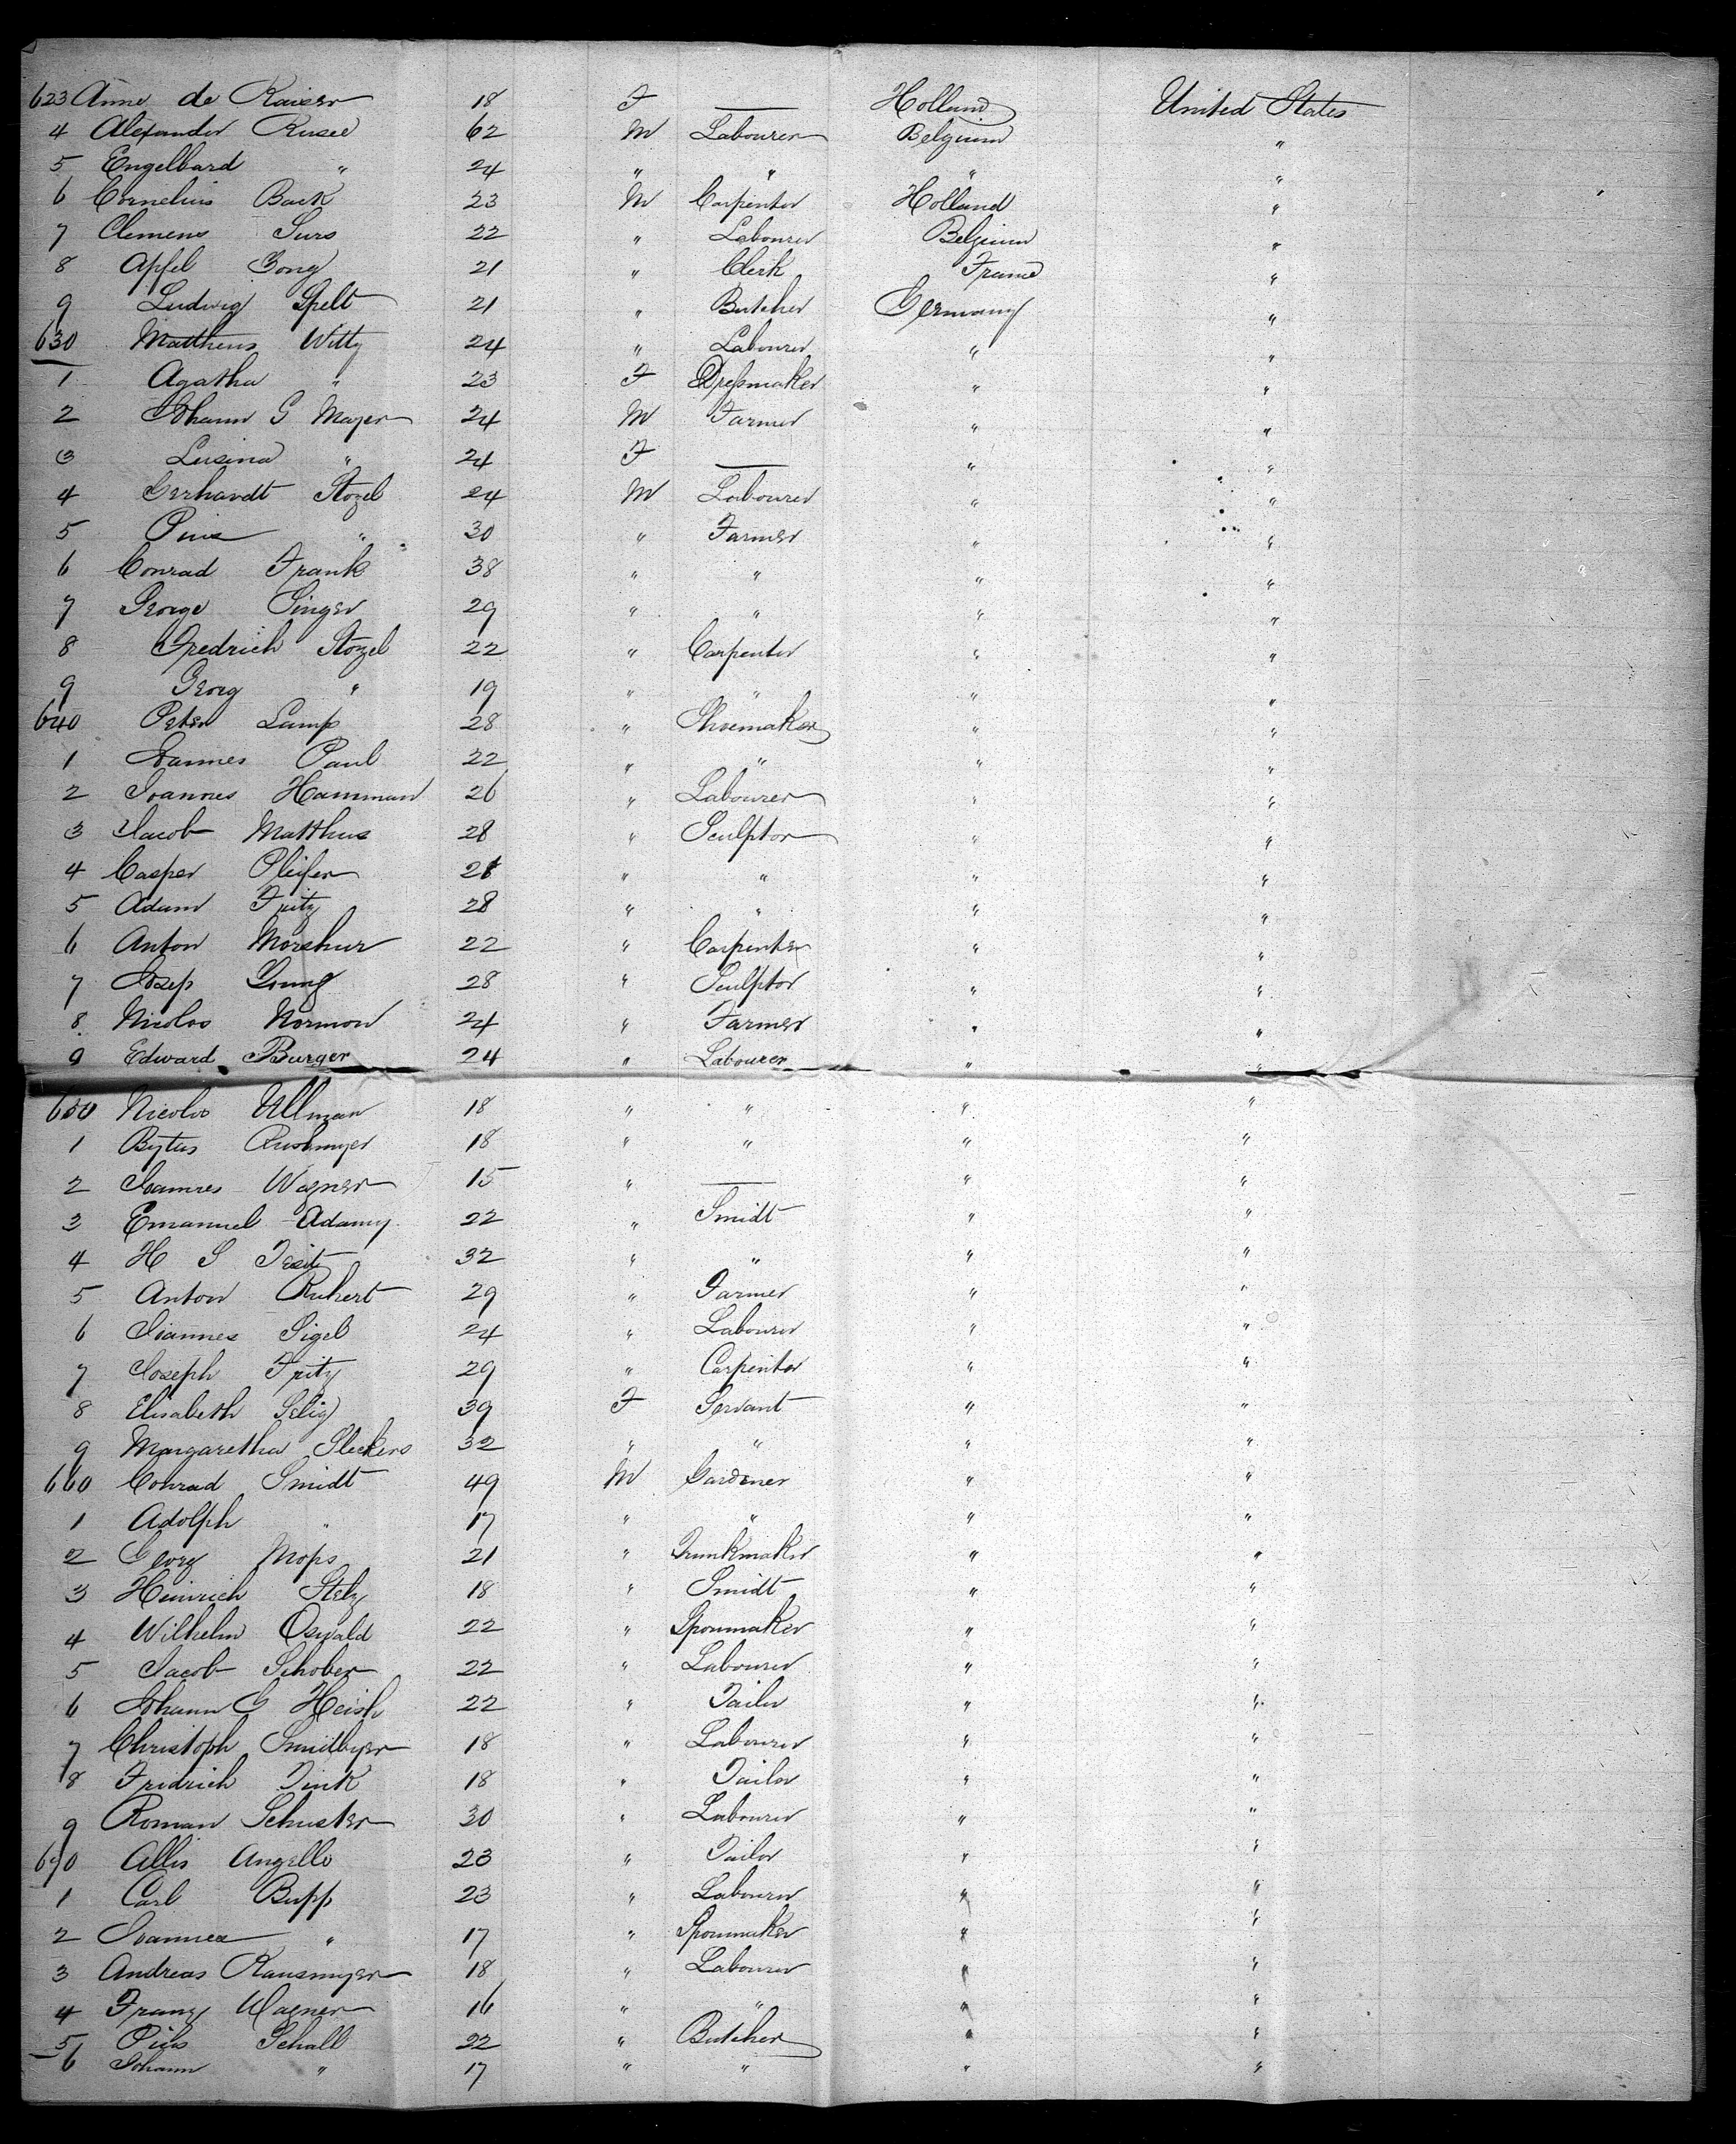 623 Anne de Kaiser 18 F — Holland United States
4 Alexander Rusee 62 M Labourer Belgium "
5 Engelbard " 24 " " " "
6 Cornelius Back 23 M Carpenter Holland "
7 Clemens Surs 22 " Labourer Belgium "
8 Apfel 21 " Clerk France "
9 Ludwig Spelt 21 " Butcher Germany "
630 Mattheus Witty 24 " Labourer " "
1 Agatha " 23 F Dressmaker " "
2 Johann G Mayer 24 M Farmer " "
3 Lusina " 24 F — " "
4 Gerhardt Stozel 24 M Labourer " "
5 Pius " 30 " Farmer " "
6 Conrad Frank 38 " " " "
7 George Singer 29 " " " "
8 Fredrich Stozel 22 " Carpenter " "
9 Georg " 19 " " " "
640 Peter Lamp 28 " Shoemaker " "
1 Joannes Paul 22 " " " "
2 Joannes Hamman 26 " Labourer " "
3 Jacob Matthus 28 " Sculptor " "
4 Casper Pleifer " " " "
5 Adam Fritz 28 " " " "
6 Anton Morshur 22 " Carpenter " "
7 Josep Young 28 " Sculptor " "
8 Nicolas Normon 24 " Farmer " "
9 Edward Burger 24 " Labourer " "
650 Nicolas Ullman 18 " " " "
1 Bytus 18 " " " "
2 Joannes Wagner 15 " — " "
3 Emanuel Adamy 22 " Smidt " "
4 H S 32 " " " "
5 Anton Ruhert 29 " Farmer " "
6 Joannes Sigel 24 " Labourer " "
7 Joseph Fritz 29 " Carpenter " "
8 Elisabeth Selig 39 F Servant " "
9 Margaretha Sleckers 32 " " " "
660 Conrad Smidt 49 M Gardener " "
1 Adolph " 17 " " " "
2 Georg Mops 21 " Trunkmaker " "
3 Heinrich Stelz 18 " Smidt " "
4 Wilhelm Oswald 22 " Spoonmaker " "
5 Jacob Schober 22 " Labourer " "
6 Johann G Heish 22 " Tailor " "
7 Christoph Smidbyer 18 " Labourer " "
8 Fridrich Fink 18 " Tailor " "
9 Roman Schuster 30 " Labourer " "
670 Allis Angello 23 " Tailor " "
1 Carl Bupp 23 " Labourer " "
2 Joannes " 17 " Spoonmaker " "
3 Andreas Rausmyer 18 " Labourer " "
4 Franz Wagner 16 " " " "
5 Pius Schall 22 " Butcher " "
6 Johann " 17 " " " "